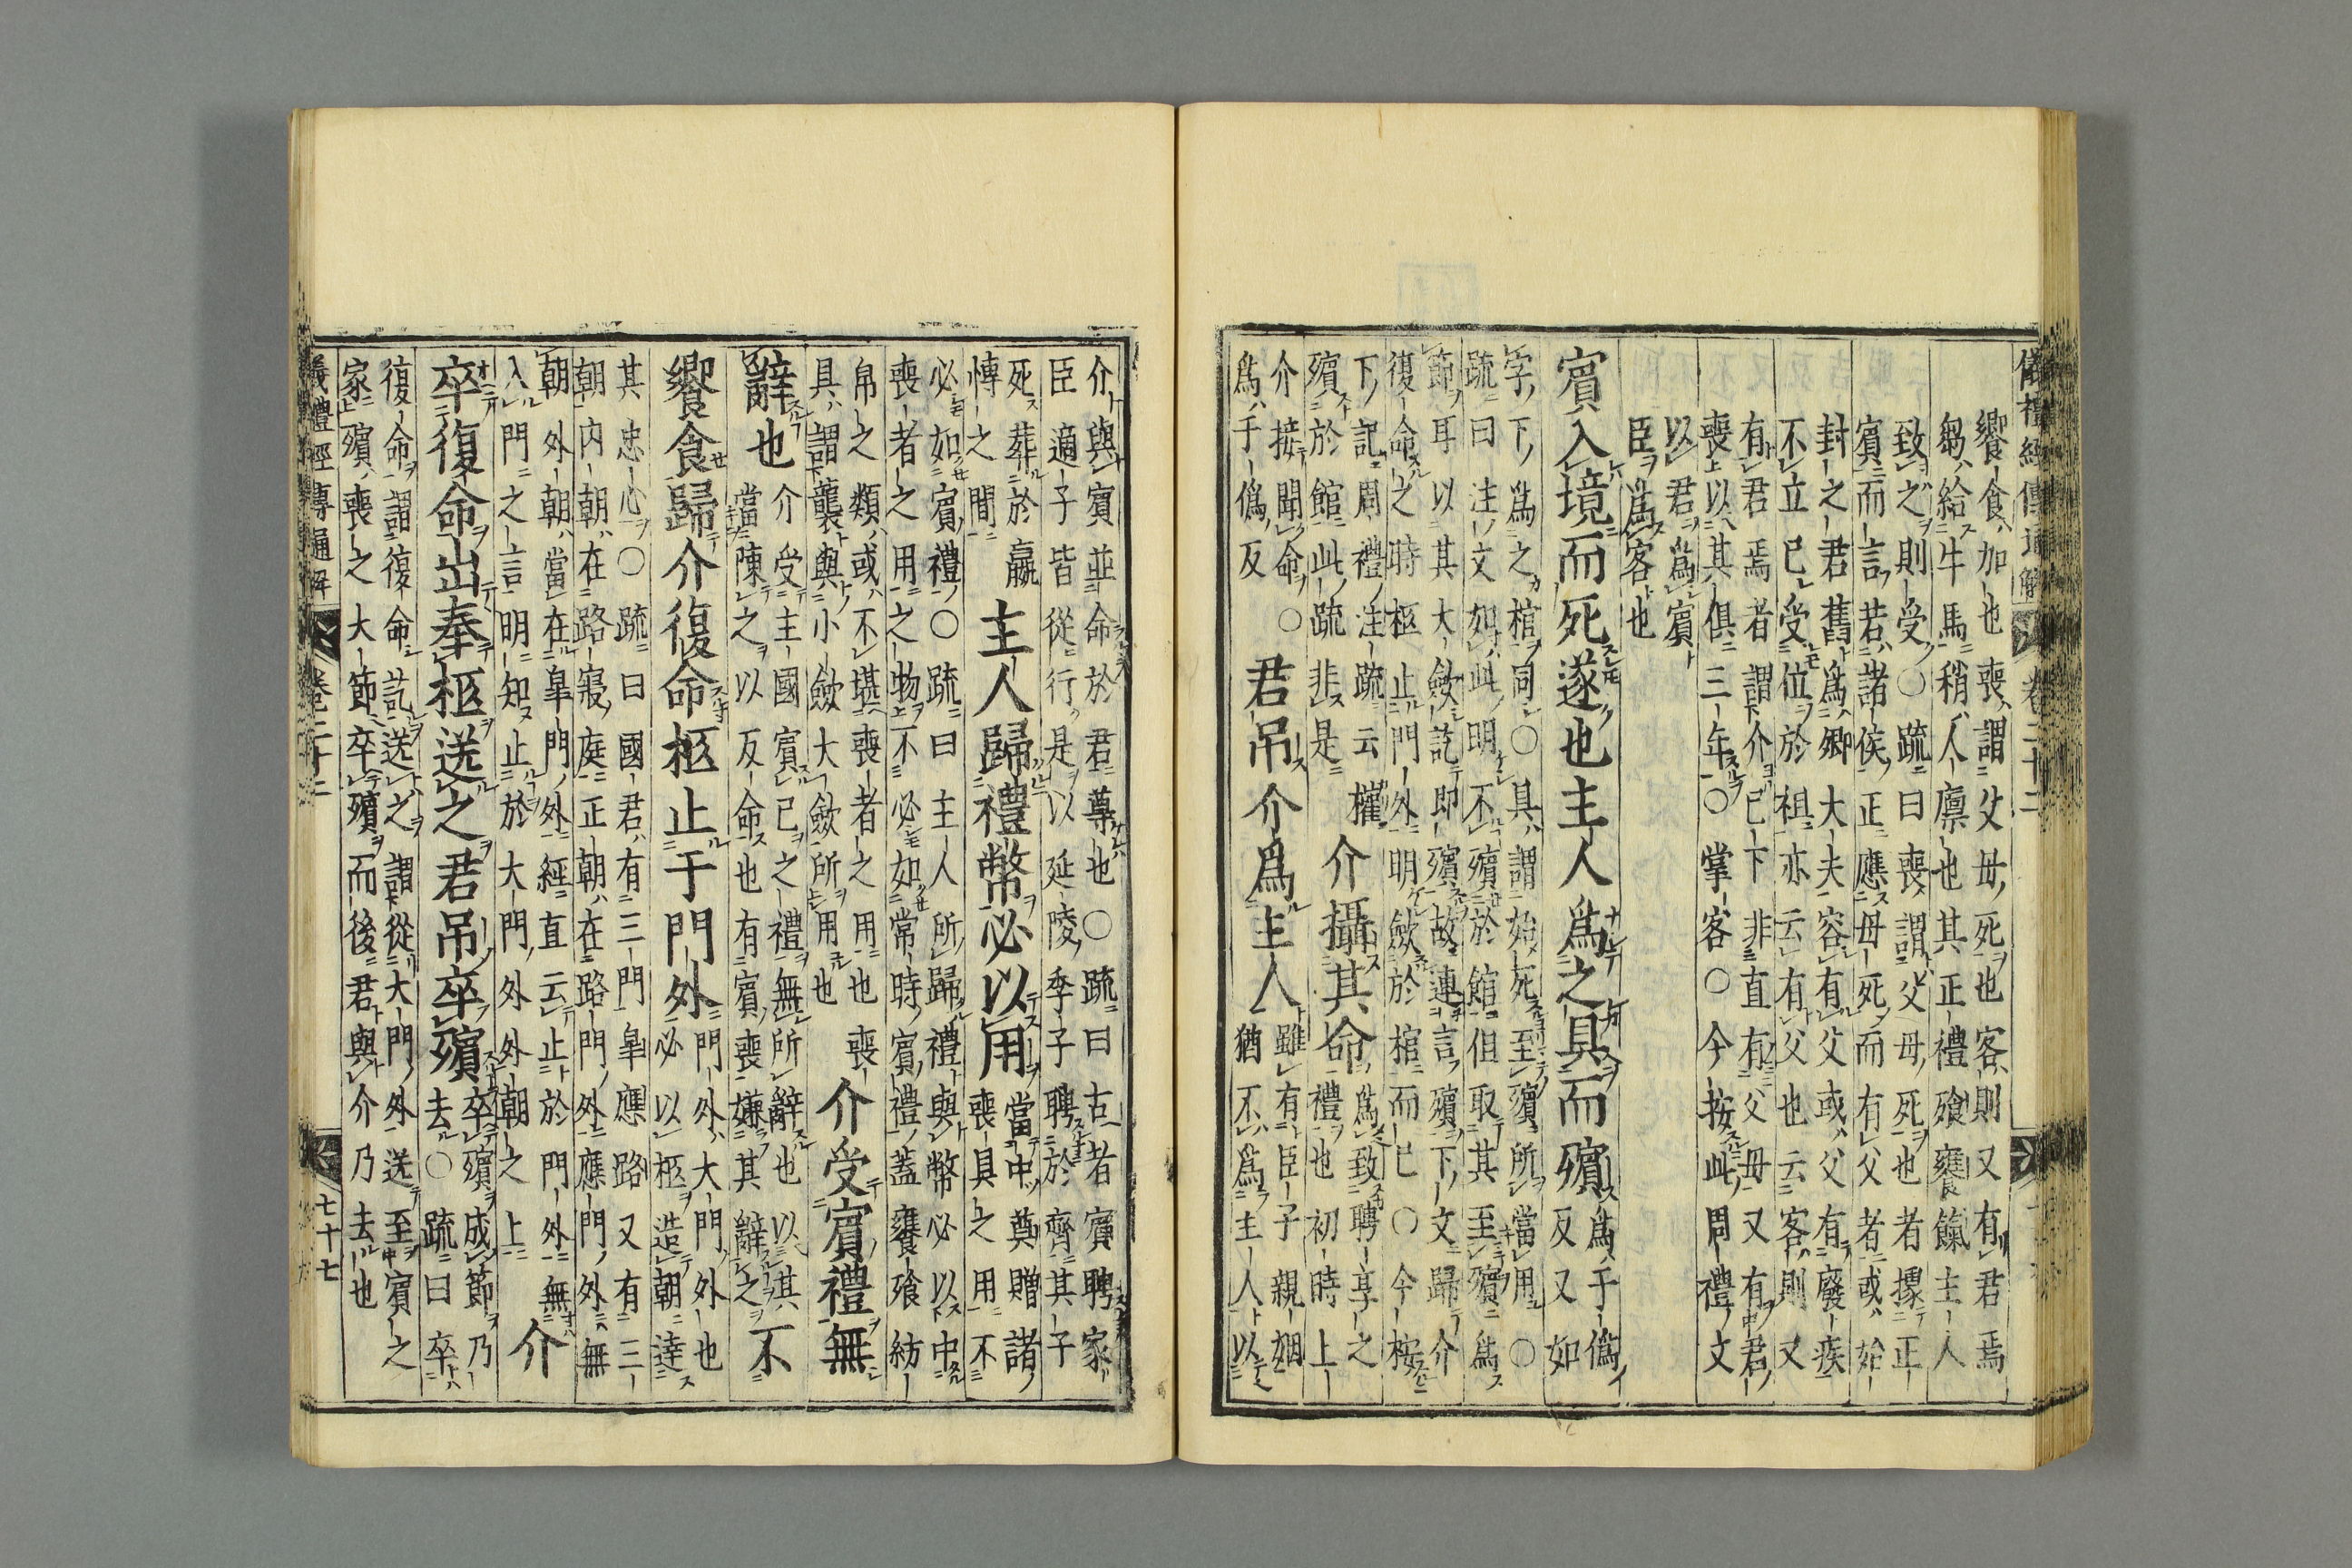 儀禮經傳通解　卷二十二
饗食加也喪謂父母死也客則又有君焉
芻給牛馬稍人廩也其正禮飧饔餼主人
致之則受〇疏曰喪謂父母死也者據正
賓而言若諸侯正應母死而有父者或始
封之君舊為卿大夫容有父或父有廢疾
不立已受位於祖亦云有父也云客則又
有君焉者謂介已下非直有父母又有君
喪以其俱三年〇掌客〇今按此周禮文
以君為賓
臣為客也
賓入境而死遂也主人為之具而殯
為于偽
反又如
字下為之棺同〇具謂始死至殯所當用〇
疏曰注文如此明不殯於館但取其至殯為
節耳以其大斂訖即殯故連言殯下文歸介
復命之時柩止門外明斂於棺而已〇今按
下記周禮注疏云權
殯於館此疏非是
介攝其命
為致聘享之
禮也初時上
介接聞命〇
為于偽反
君吊介為主人
雖有臣子親姻
猶不為主人以
介與賓並命於君尊也〇疏曰古者賓聘家
臣適子皆從行是以延陵季子聘於齊其子
死葬於嬴
博之間
主人歸禮幣必以用
當中奠贈諸
喪具之用不
必如賓禮〇疏曰主人所歸禮與幣必以中
喪者之用之物不必如常時賓禮蓋饔飧紡
帛之類或不堪喪者之用也喪
具謂襲與小斂大斂所用也
介受賓禮無
辭也
介受主國賓已之禮無所辭也以其
當陳之以反命也有賓喪嫌其辭之
不
饗食歸介復命柩止于門外
門外大門外也
必以柩造朝達
其忠心〇疏曰國君有三門皐應路又有三
朝內朝在路寢庭正朝在路門外應門外無
朝外朝當在皐門外經直云止於門外無
入門之言明知止於大門外外朝之上
介
卒復命出奉柩送之君吊卒殯
卒殯成節乃
去〇疏曰卒
復命謂復命訖送之謂從大門外送至賓之
家殯喪之大節卒殯而後君與介乃去也
儀禮經傳通解　卷二十二　七十七